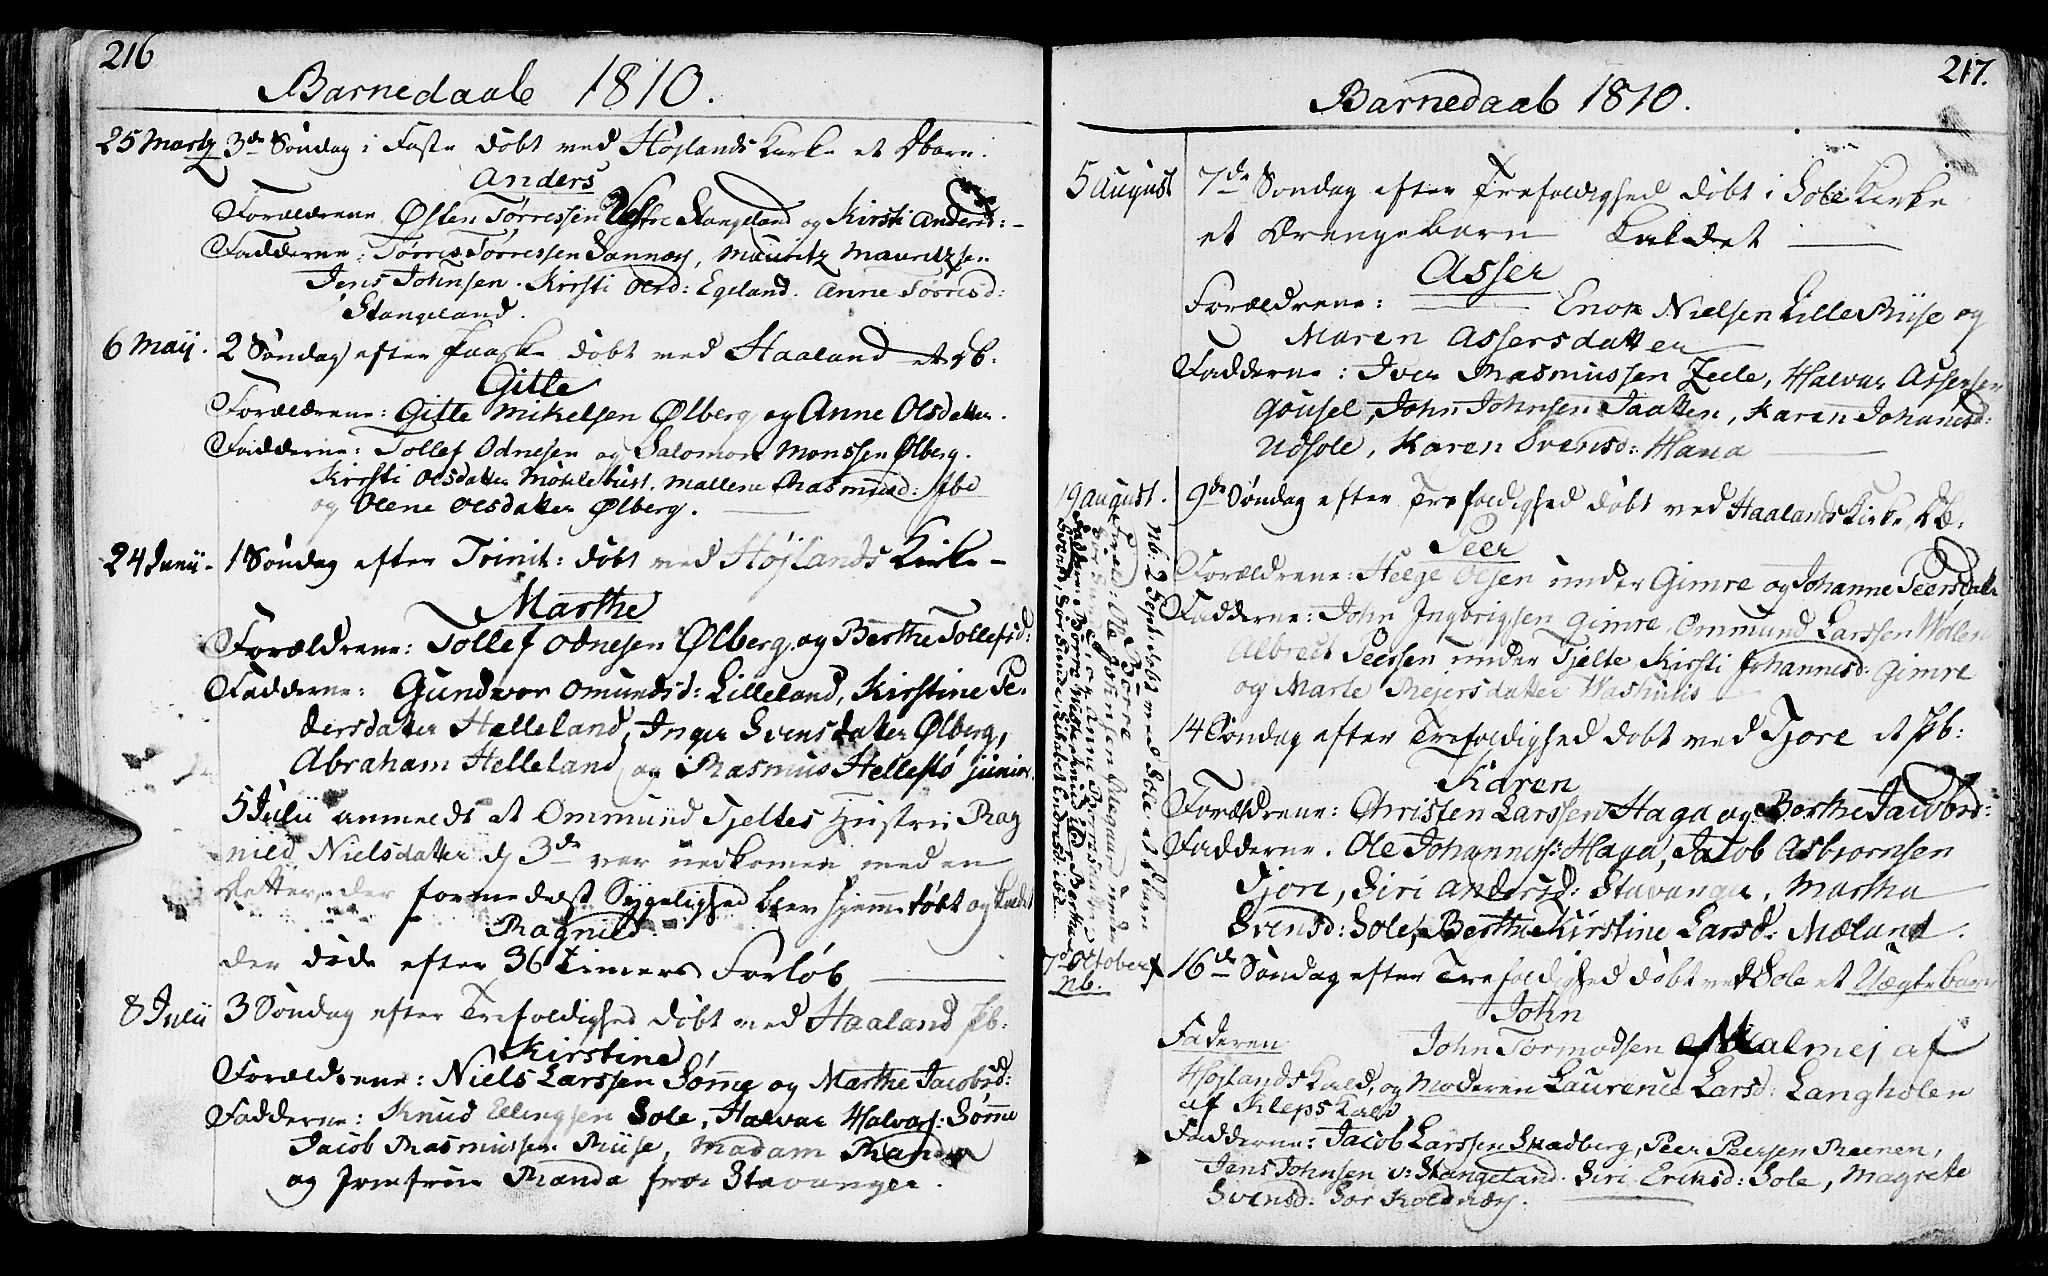 216
Barnedaab 1810.
25 Marty 3de Søndag i Faste døbt ved Højlands Kirke et Dbarn.
Anders
Forældrene Østen Tørressen Vestre Stangeland og Kirsti Andersd:
Fadderne: Tørres Tørressen Sannæs, Mauritz Mauritzsen
Jens Johnsen. Kirsti Olsd: Egeland. Anne Tørresd:
Stangeland.
6 Maii. 2 Søndag efter Paaske døbt ved Haaland et Db.
Gitle
Forældrene: Gitle Mikelsen Ølberg og Anne Olsdatter.
Fadderne: Tollef Odnesen og Salomon Monssen Ølberg.
Kirsti Olsdatter Møklebust, Mallene Rasmusd: ibd
og Olene Olsdatter Ølberg.
24 Junii - 1 Søndag efter Trinit: døbt ved Højlands Kirke -
Marthe
Forældrene: Tollef Odnesen Ølberg og Berthe Tollefsd:
Fadderne: Gundvor Omundsd: Lilleland, Kirstine Pe-
dersdatter Helleland, Inger Svensdatter Ølberg,
Abraham Helleland og Rasmus Hellestø junior.
5 Julii anmeldt at Ommund Tjeltes Hustru Rag
nild Nielsdatter d 3de var nedkommen med en
Datter, der formedelst Sygelighed blev hjemmedøbt og kaldet
Ragnild.
der døde efter 36 Timers Forløb
8 Julii 3 Søndag efter Trefoldighed døbt ved Haaland Pb.
Kirstine
Forældrene: Niels Larssen Sømme og Marthe Jacobsd:
Fadderne: Knud Ellingsen Sole, Halvar Halvors: Sømme
Jacob Rasmussen Riise, Madam Randa
og Jomfrue Randa fra Stavanger.
217.
Barnedaab 1810.
5 August 7de Søndag efter Trefoldighed døbt i Sole Kirke
et Drengebarn kaldet
Asser
Forældrene: Enok Nielsen Lille Riise og
Maren Assersdatter
Fadderne: Iver Rasmussen Zeele, Halvar Assersen
Gousel, John Johnsen Taatten, Karen Johanesd:
Udsole, Karen Svensd: Hana
19 August. 9de Søndag efter Trefoldighed døbt ved Haalands Kirke Db.
Peer
Forældrene: Helge Olsen under Gimre og Johanne Peersdatter
Fadderne: John Ingbrigsen Gimre, Ommund Larssen Wolleni
Albrect Peersen under Tjelte Kirsti Johannesd: Gimre
og Marte Rejersdatter Washuus
Nb: 2 Sept: døbt ved Sole et Dbarn
Børre
Foræld: Ole Johnsen under
og Anne Børresdatter
Fadderne Børre Knud ibd. Berthe
Svends. Sør Sunde, Lisbet Endresd: ibid.
14 Søndag efter Trefoldighed døbt ved Tjore et Pb:
Karen
Forældrene: Christen Larssen Haga og Berthe Jacobsd:
Fadderne. Ole Johannes: Haga, Jacob Asbrornsen
Tjore, Siri Andersd: Stavanger, Martha
Svensd: Sole, Berthe Kirstine Larsd. Mæland.
7de October Nb. 16de Søndag efter Trefoldighed døbt ved Sole et Uægte barn
John
Faderen John Tormodsen Malmej af
Højlands Kald, og Moderen Laurence Larsd: Langholen
af Kleps Kald
Fadderne: Jacob Larssen Snadberg, Peer Peersen Reenen,
Jens Johnsen v: Stangeland. Siri Eriksd: Sole, Magrete
Svensd: Sør Kolnæs.